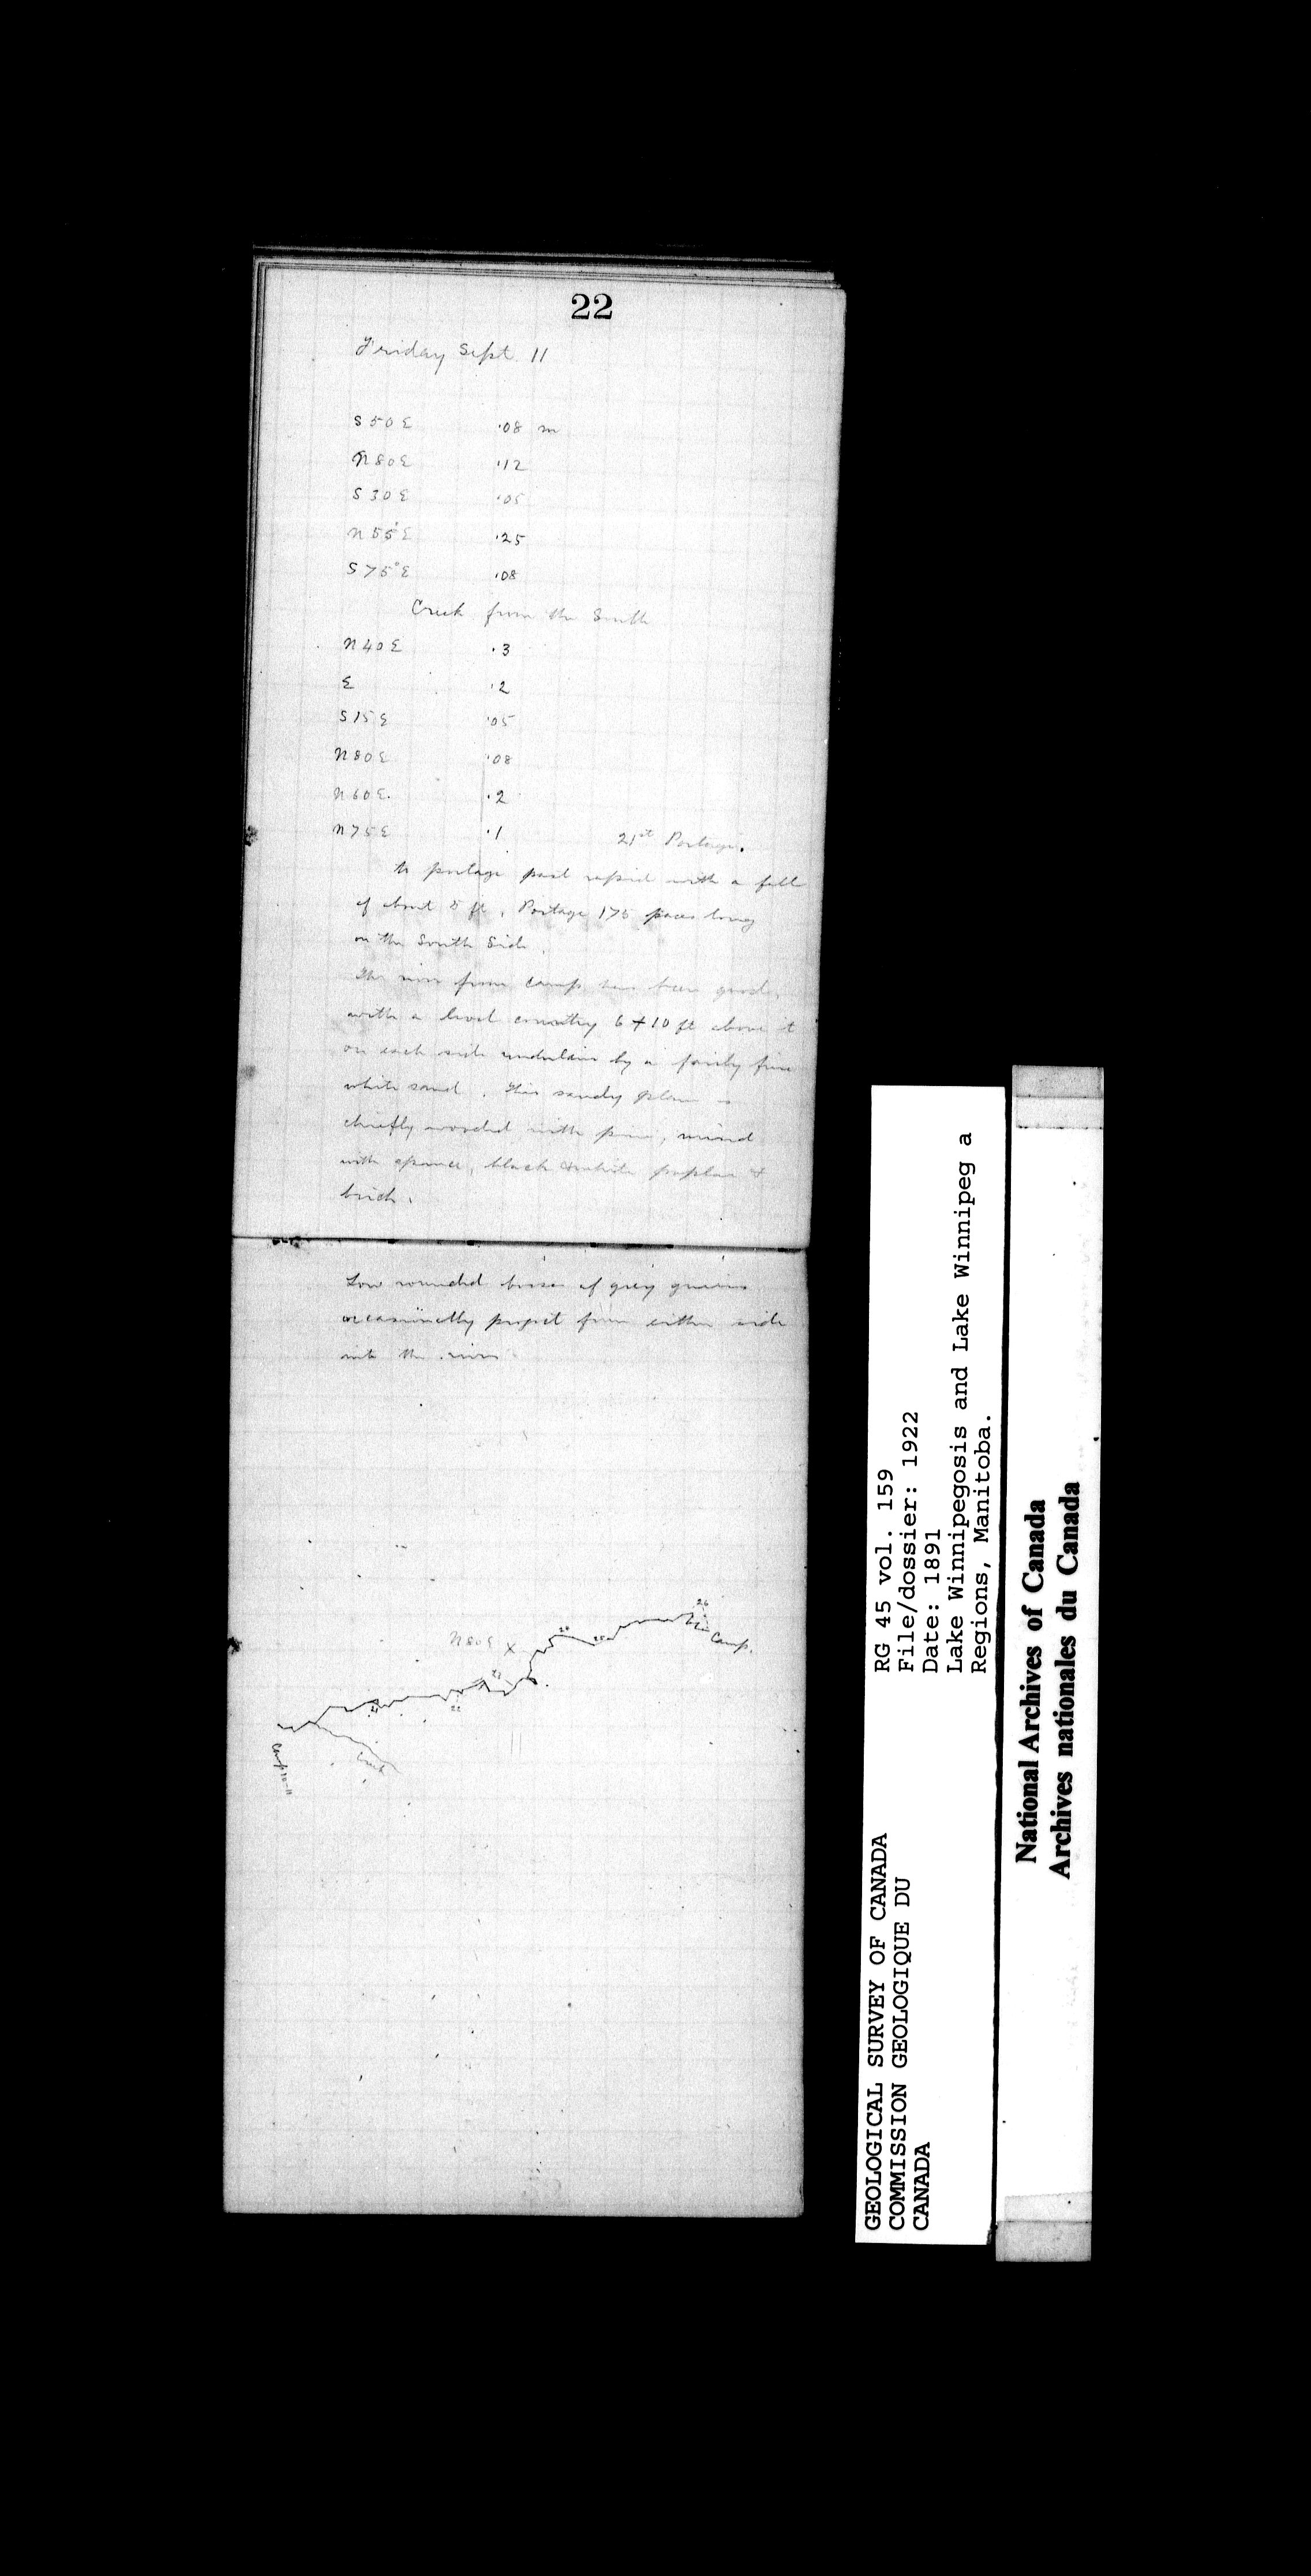 22
Friday Sept. 11
S 50 E .08 m
N 80 E .12
S 30 E .05
N 55° E .25
S 75° E .08
Creek from the South
N 40 E .3
E .2
S 15 E .05
N 80 E .08
N 60 E. .2
N 75 E .1 21st Portage.
to portage past rapid with a fall
of about 5 ft. Portage 175 paces long
on the South Side.
The river from camp has been good,
with a level country 6 + 10 ft above it
on each side underlain by a fairly fine
white sand. This sandy plain is
chiefly wooded with pine, mixed
with spruce, black & white poplar &
birch.
Low rounded bosses of grey gneiss
occasionally project from either side
into the river
N 80 E X
26
Camp.
Camp 10-11
Creek
GEOLOGICAL SURVEY OF CANADA
COMMISSION GEOLOGIQUE DU
CANADA
RG 45 vol. 159
File/dossier: 1922
Date: 1891
Lake Winnipegosis and Lake Winnipeg a
Regions, Manitoba.
National Archives of Canada
Archives nationales du Canada